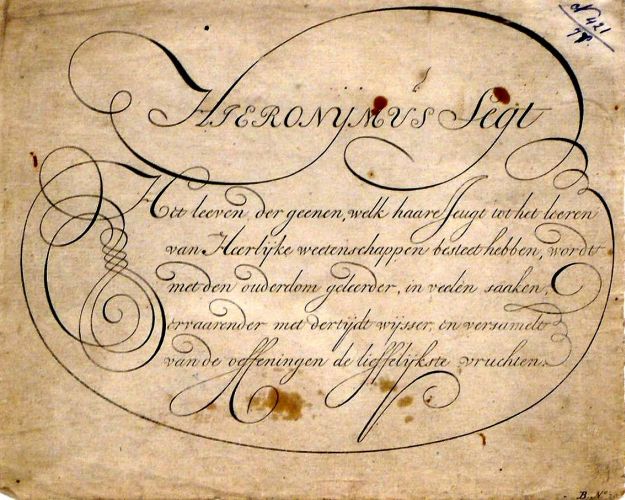 N 421
HIERONYMUS Segt
Het leeven der geenen, welk haare Jeugt tot het loeren
van Heerlijke weetenschappen besteet hebben, wordt
met den ouderdom geleerder, in veelen saaken,
ervaarender met der tijdt wijsser, en versamelt
van de oeffeningen de lieffelijkste vruchten.
B. No